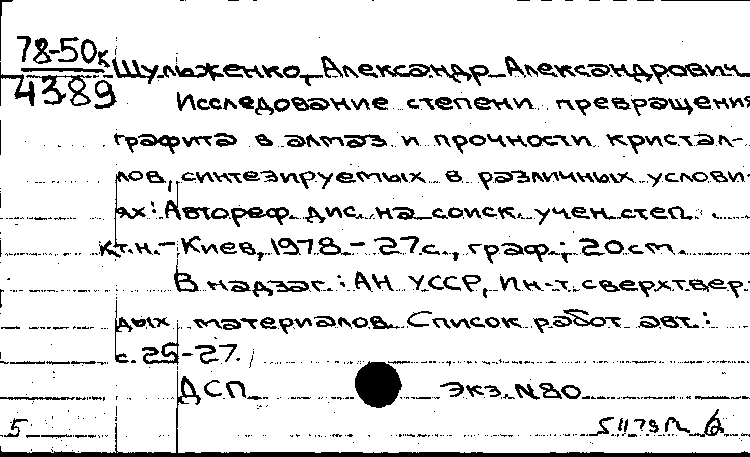 78-50к
4389
Шульженко, Александр Александрович
Исследование степени превращения
графита в алмаз и прочности кристал-
лов, синтезируемых в различных услови-
ях: Автореф. дис. на соиск. учен. степ.
к.т.н. - Киев, 1978. - 27с., граф.; 20см.
В надзаг.: АН УССР, Ин-т. сверхтвер-
дых материалов. Список работ авт.:
с. 25-27.
ДСП Экз. №80
5